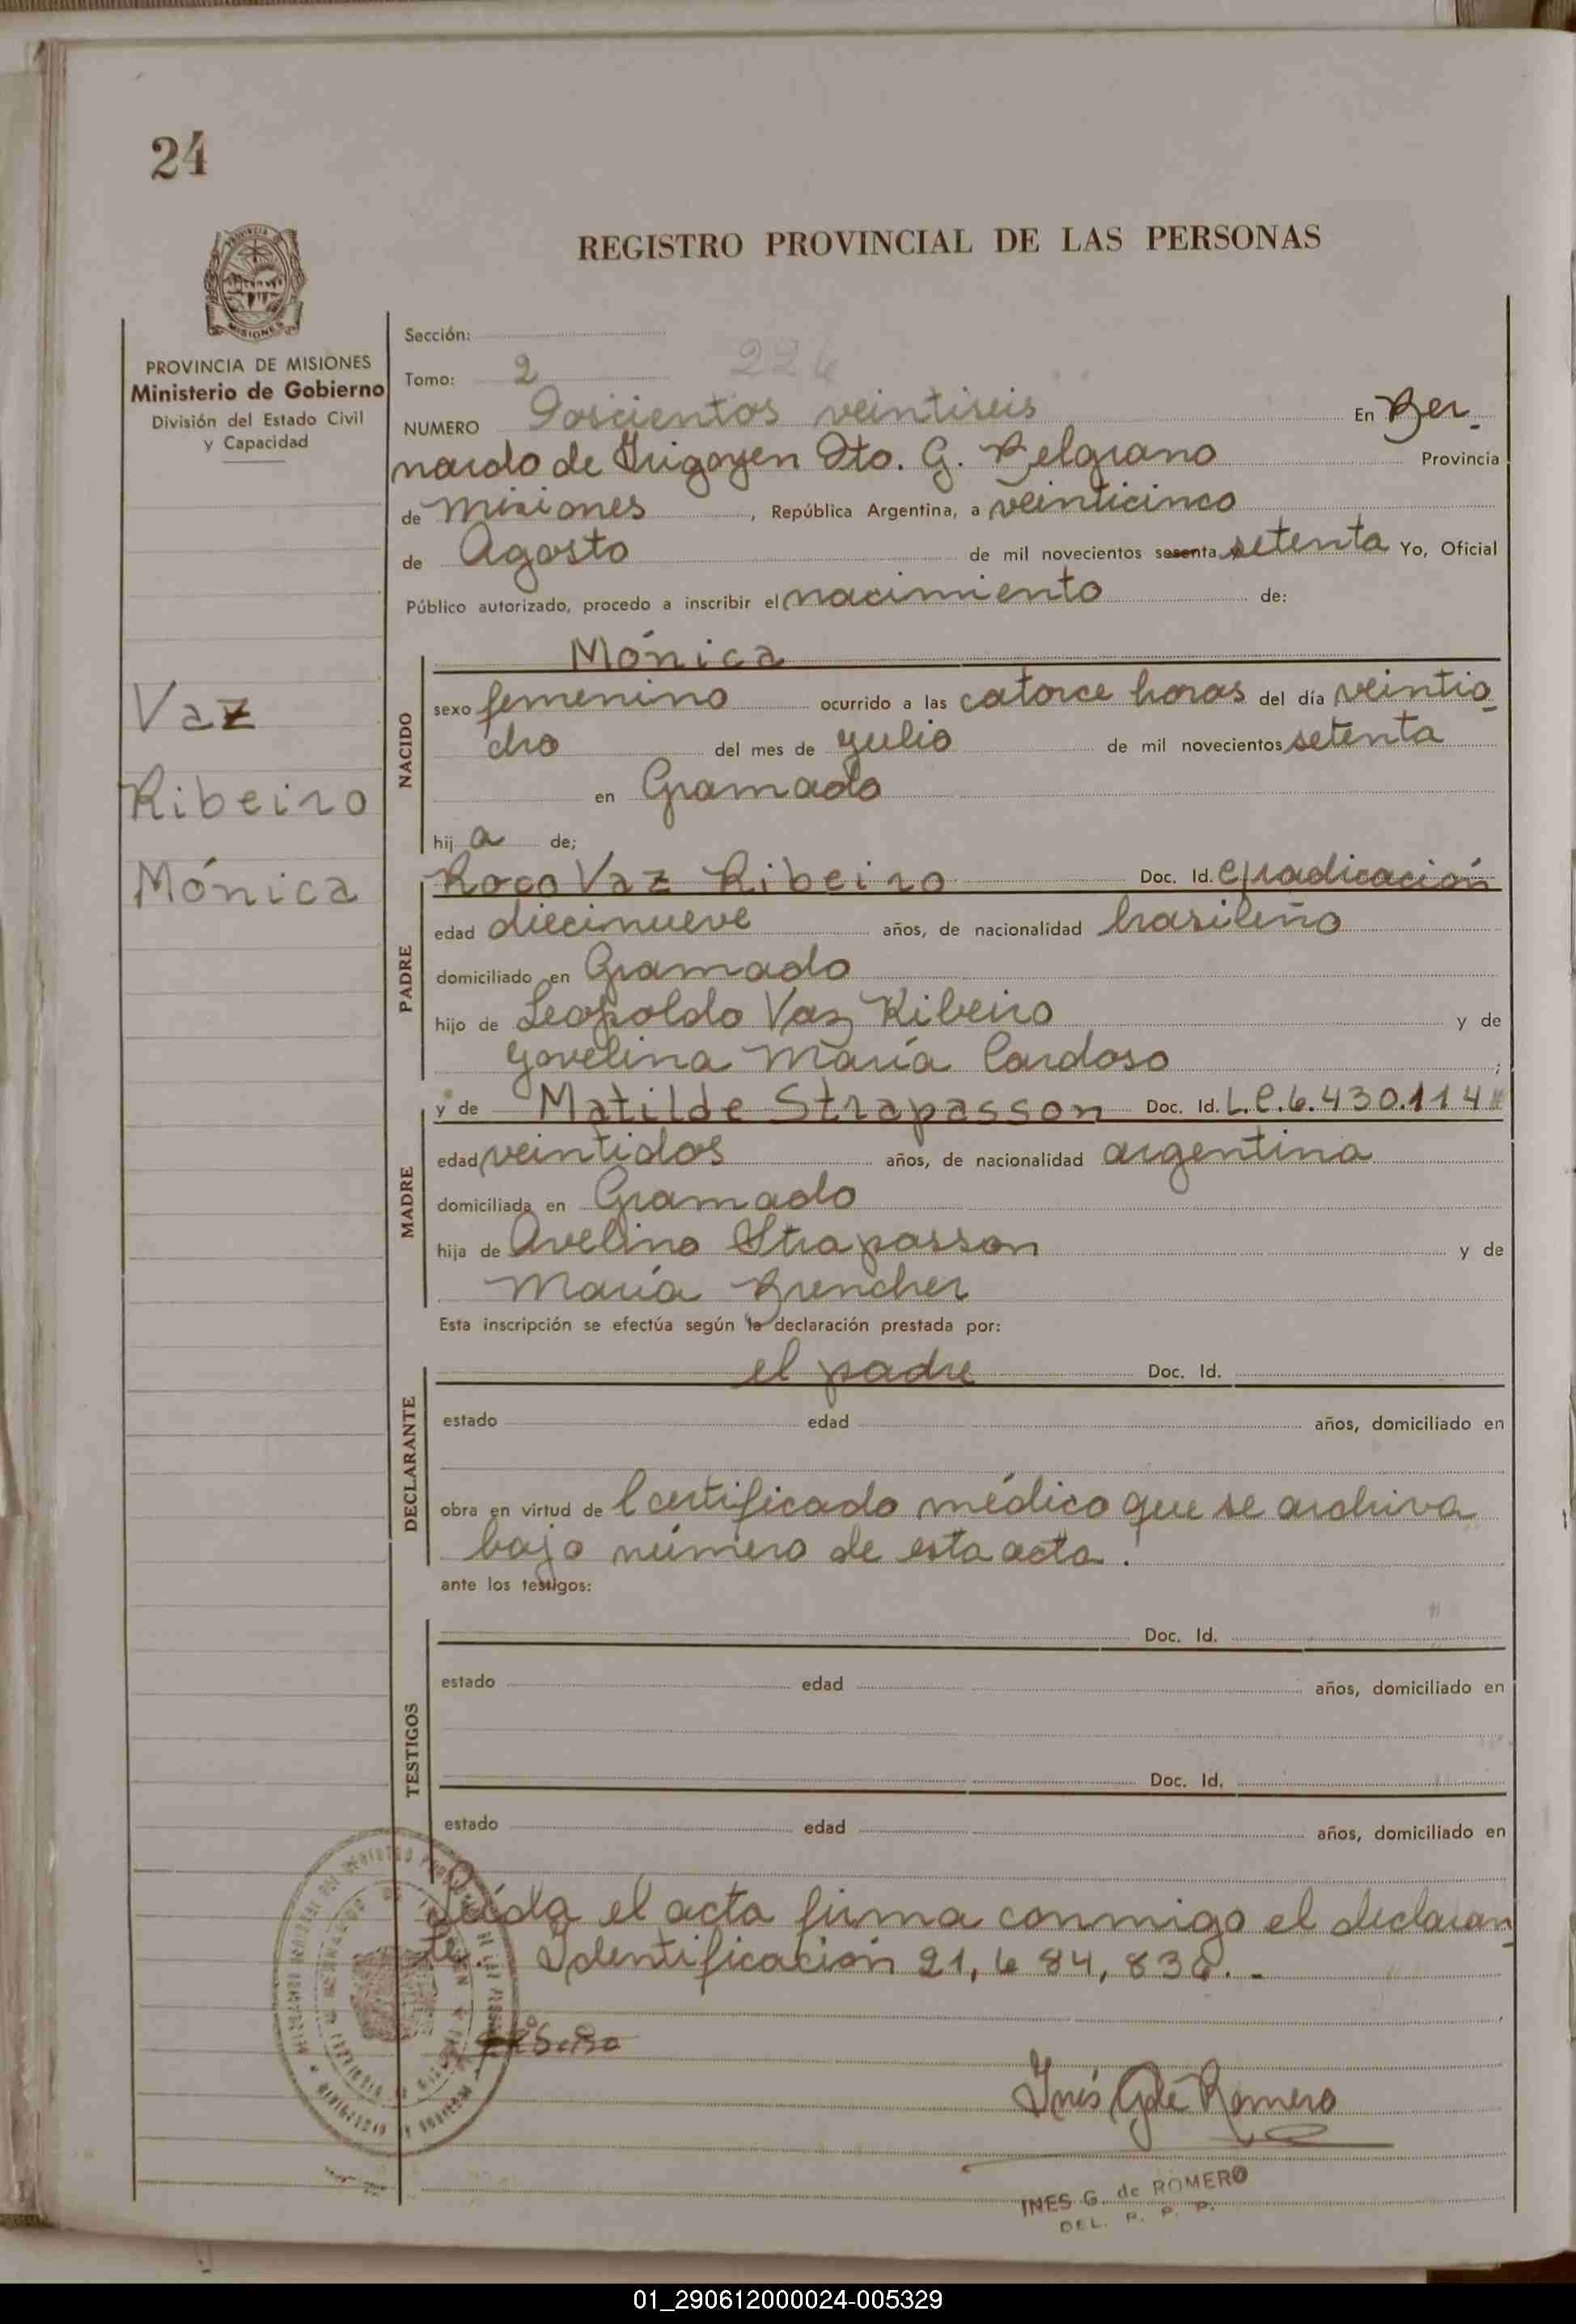 24
REGISTRO PROVINCIAL DE LAS PERSONAS
PROVINCIA DE MISIONES
Ministerio de Gobierno
División del Estado Civil
y Capacidad
Sección:
Tomo: 2 226
NUMERO Doscientos veintiseis En Ber-
nardo de Irigoyen Dto. G. Belgrano Provincia
de Misiones, República Argentina, a veinticinco
de Agosto de mil novecientos sesenta y setenta Yo, Oficial
Público autorizado, procedo a inscribir el nacimiento de:
Vaz
Ribeiro
Mónica
NACIDO
Mónica
sexo femenino ocurrido a las catorce horas del día veintio-
cho del mes de Julio de mil novecientos setenta
en Gramado
hij a de;
PADRE
Roco Vaz Ribeiro Doc. Id. c/radicación
edad diecinueve años, de nacionalidad brasileño
domiciliado en Gramado
hijo de Leopoldo Vaz Ribeiro y de
Jovelina María Cardoso ;
MADRE
y de Matilde Strapasson Doc. Id. L.C.6.430.114
edad veintidos años, de nacionalidad argentina
domiciliada en Gramado
hija de Avelino Strapasson y de
María Brencher
Esta inscripción se efectúa según la declaración prestada por:
DECLARANTE
el padre Doc. Id.
estado edad años, domiciliado en
obra en virtud de Certificado médico que se archiva
bajo número de esta acta.
ante los testigos:
TESTIGOS
Doc. Id.
estado edad años, domiciliado en
Doc. Id.
estado edad años, domiciliado en
Leída el acta firma conmigo el declaran-
te. Identificación 21,684,830.-
Ribeiro
Inés G de Romero
INES G. de ROMERO
DEL. R. P. P.
01_290612000024-005329